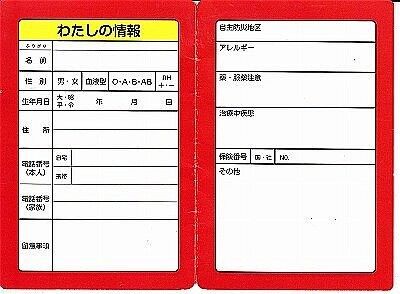 わたしの情報
ふりがな
名 前
性 別 男・女 血液型 O・A・B・AB RH + ー
生年月日 大・昭 平・令 年 月 日
住 所
電話番号 (本人) 自宅
携帯
電話番号 (家族)
留意事項
自主防災地区
アレルギー
薬・服薬注意
治療中疾患
保険番号 国・社 NO.
その他